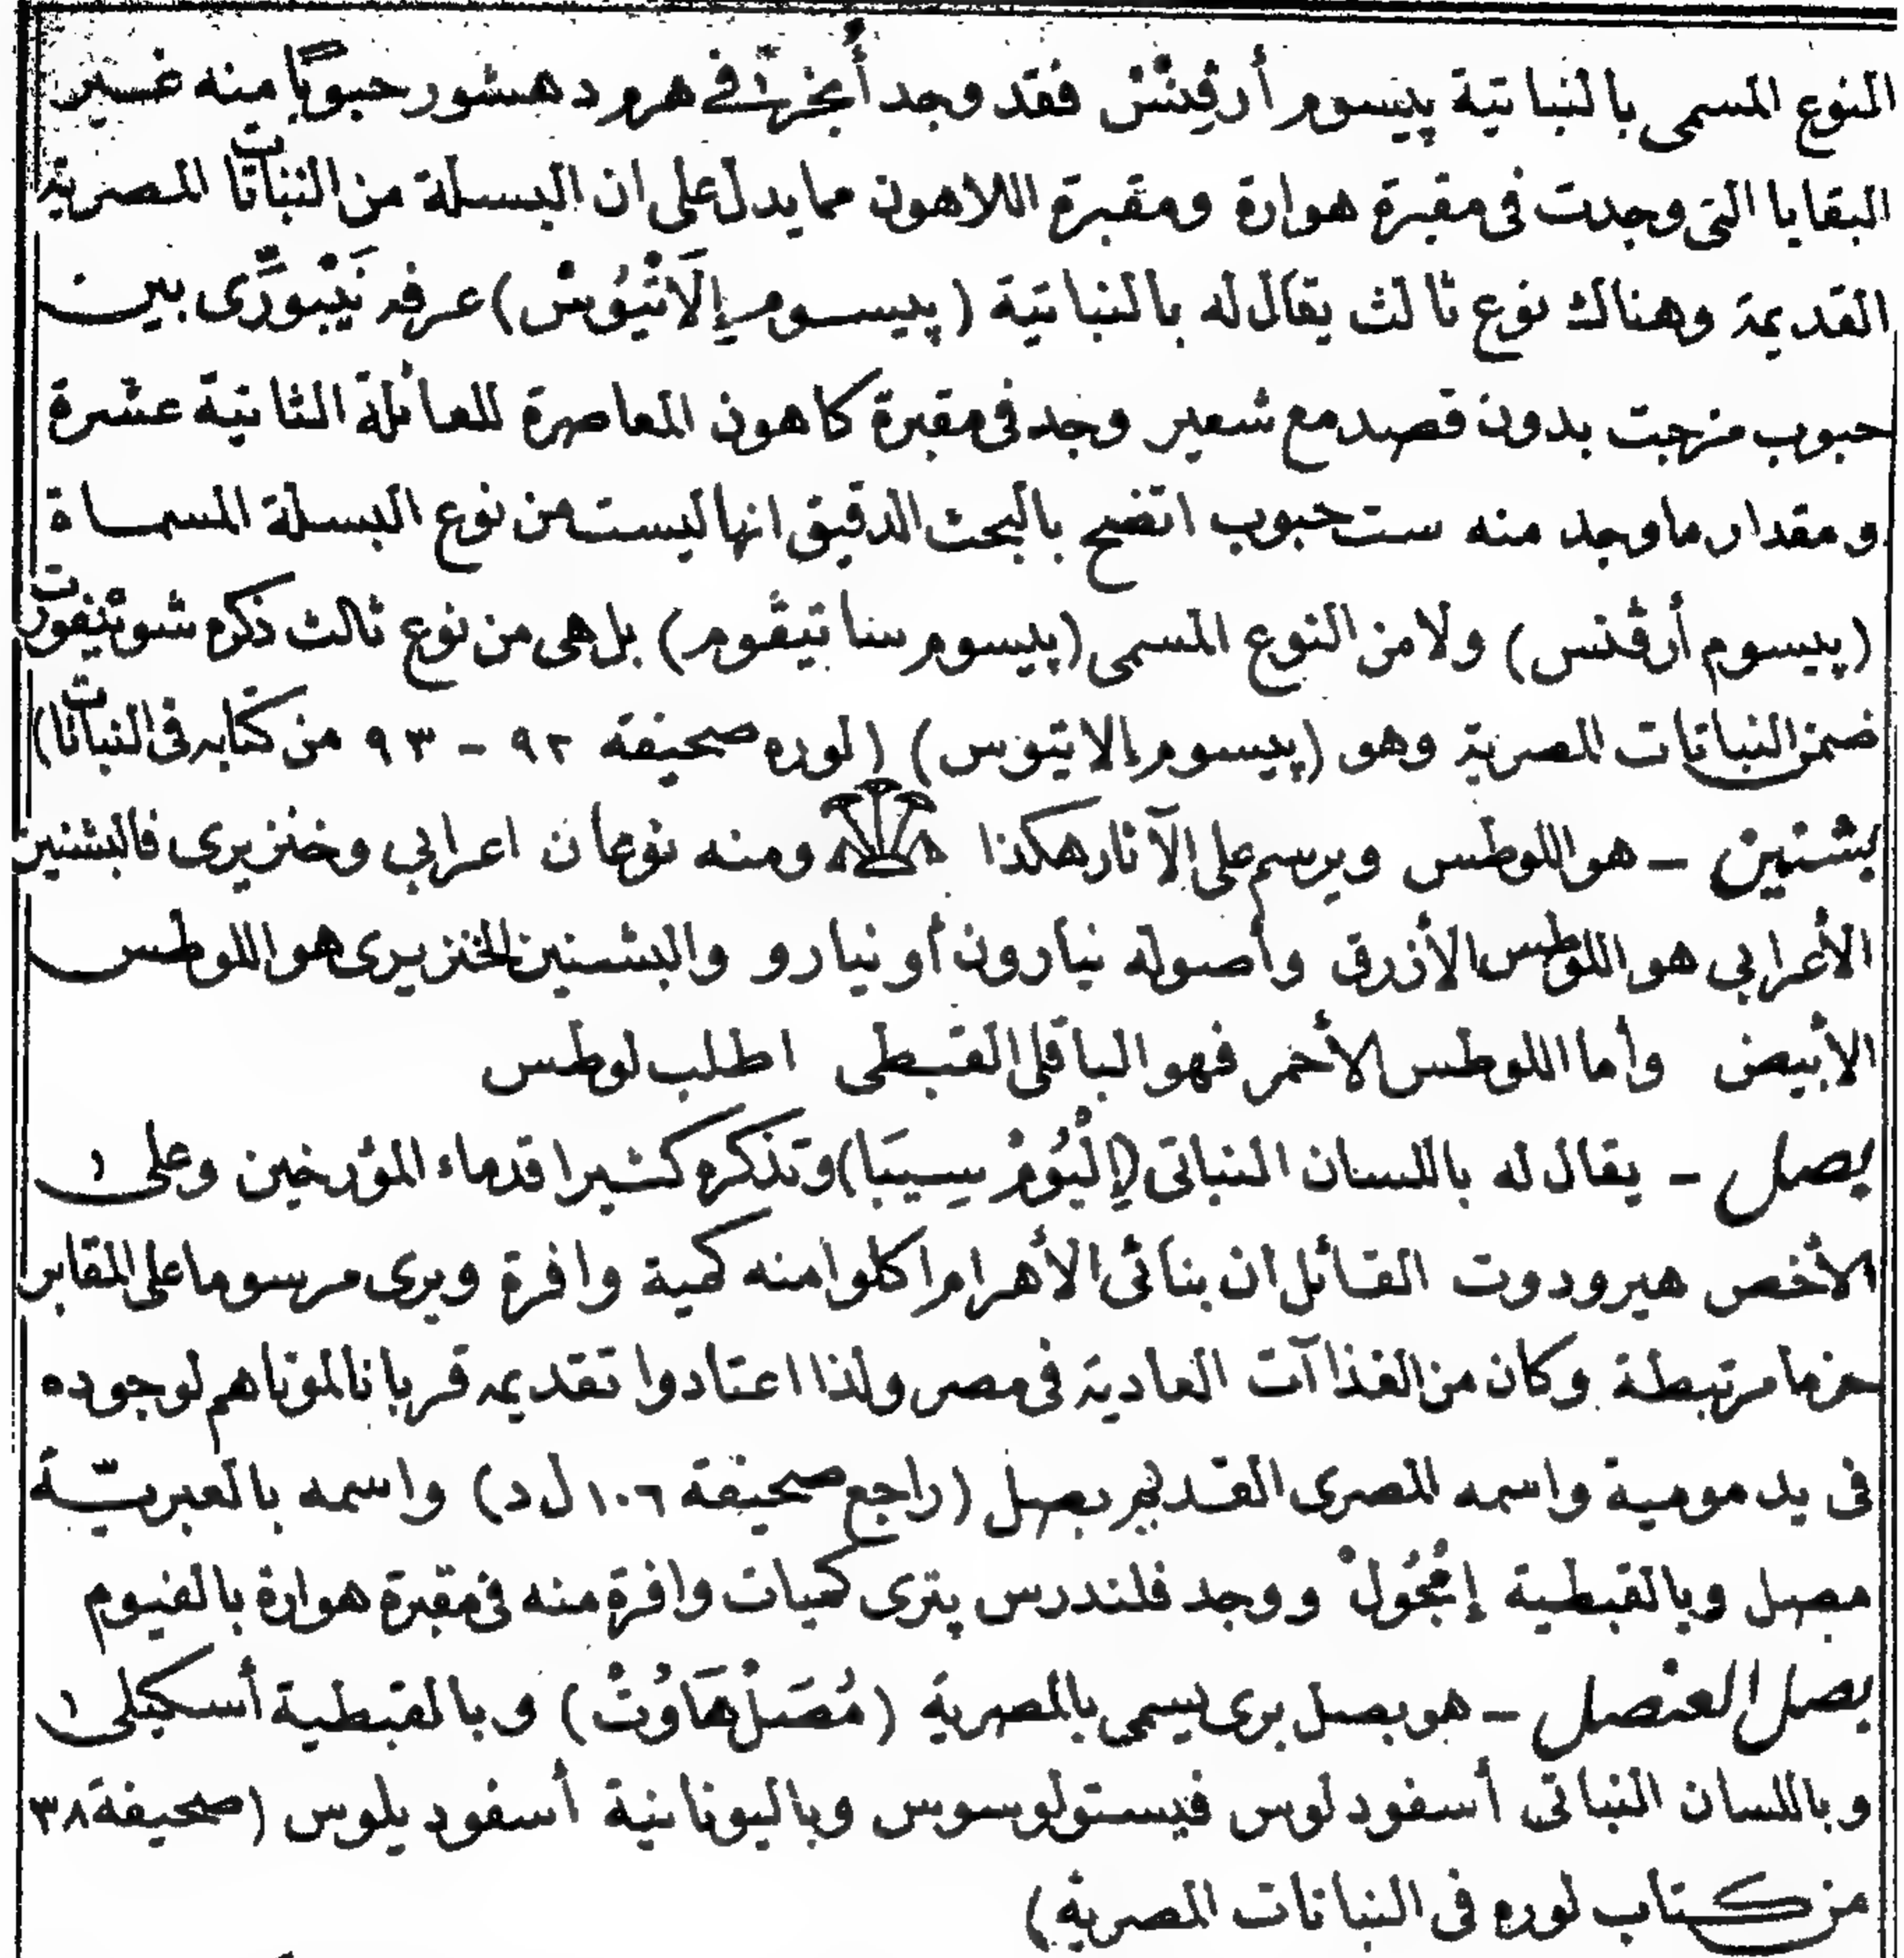 النوع المسمى بالنباتية پيسوم أرڤِنْسْ فقد وجد أُنْجَرْ في هرم دهشور حبوبًا منه غير
البقايا التى وجدت فى مقبرة هوارة ومقبرة اللاهون مما يدل على ان البسلة من النباتات المصرية
القديمة وهناك نوع ثالث يقال له بالنباتية (پيسوم إِلَاتْيُوسْ) عرفه نَيْبُورِّى بين
حبوب مزجت بدون قصد مع شعير وجد فى مقبرة كاهون المعاصرة للعائلة الثانية عشرة
ومقدار ما وجد منه ست حبوب اتضح بالبحث الدقيق انها ليست من نوع البسلة المسماة
(پيسوم أرڤنس) ولا من النوع المسمى (پيسوم ساتيڤوم) بل هى من نوع ثالث ذكره شوينفورت
ضمن النباتات المصرية وهو (پيسوم إلاتيوس) (لوره صحيفة ٩٢ - ٩٣ من كتابه فى النباتات)
بشنين - هو اللوطس ويرسم على الآثار هكذا ومنه نوعان اعرابي وخنزيرى فالبشنين
الأعرابي هو اللوطس الأزرق وأصوله نيارون أو نيارو والبشنين الخنزيرى هو اللوطس
الأبيض وأما اللوطس الأحمر فهو الباقلى القبطى اطلب لوطس
بصل - يقال له باللسان النباتى (إِلْيُومْ سِيبَا) وتذكره كثيرا قدماء المؤرخين وعلى
الأخص هيرودوت القائل ان بنائى الأهرام اكلوا منه كمية وافرة ويرى مرسوما على المقابر
حزما مرتبطة وكان من الغذاآت العادية فى مصر ولذا اعتادوا تقديمه قربانا لموتاهم لوجوده
فى يد مومية واسمه المصرى القديم بصل (راجع صحيفة ١٠٦ ل د) واسمه بالعبريّة
مصل وبالقبطية إِمْجُولْ ووجد فلندرس پترى كميات وافرة منه فى مقبرة هوارة بالفيوم
بصل العنصل - هو بصل برى يسمى بالمصرية (مُصَلْ هَاوُتْ) وبالقبطية أسكيلى
وباللسان النباتى أسفودلوس فيستولوسوس وباليونانية أسفوديلوس (صحيفة ٣٨
من كتاب لوره فى النباتات المصرية)